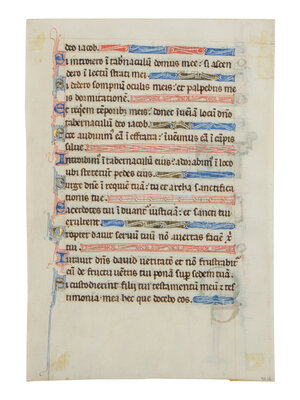 deo iacob.
Si introiero in tabnaculū domus mee: si ascen
dero ī lectū strati mei.
Si dedero sompnū oculis meis: et palpebris me
is dormitationē.
Et requiem tēporib; meis: donec īueniā locū dn̄o
tabernaculū deo iacob.
Ecce audiuim᾽ eā ī effrata: īuenimus eā ī cāpis
silue.
Introibim᾽ ī tabernaculū eius: adorabim᾽ ī loco
ubi steterunt pedes eius.
Surge dn̄e ī requiē tuā: tu et archa sanctifica
tionis tue.
Sacerdotes tui īduant᾽ iusticiā: et sancti tui
exultent.
Propter dauid seruū tuū nō auertas faciē xp̄i
tui.
Iurauit dn̄s dauid ueritatē et nō frustrabit᾽
eū de fructu uētris tui ponā sup̄ sedem tuā.
Si custodierint filii tui testamentū meū et tes
timonia mea hec que docebo eos.